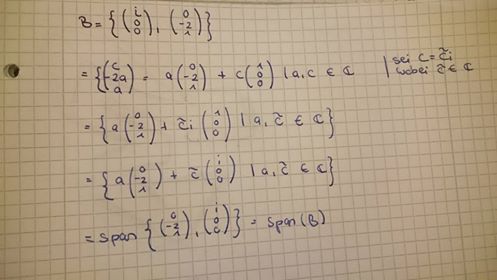 B = { (i 0 0), (0 -2 1) }
= { (c -2a a) = a (0 -2 1) + c (1 0 0) | a, c ∈ ℂ | sei c = c̃i
wobei c̃ ∈ ℂ
= { a (0 -2 1) + c̃i (1 0 0) | a, c̃ ∈ ℂ }
= { a (0 -2 1) + c̃ (i 0 0) | a, c̃ ∈ ℂ }
= span { (0 -2 1), (i 0 0) } = span (B)